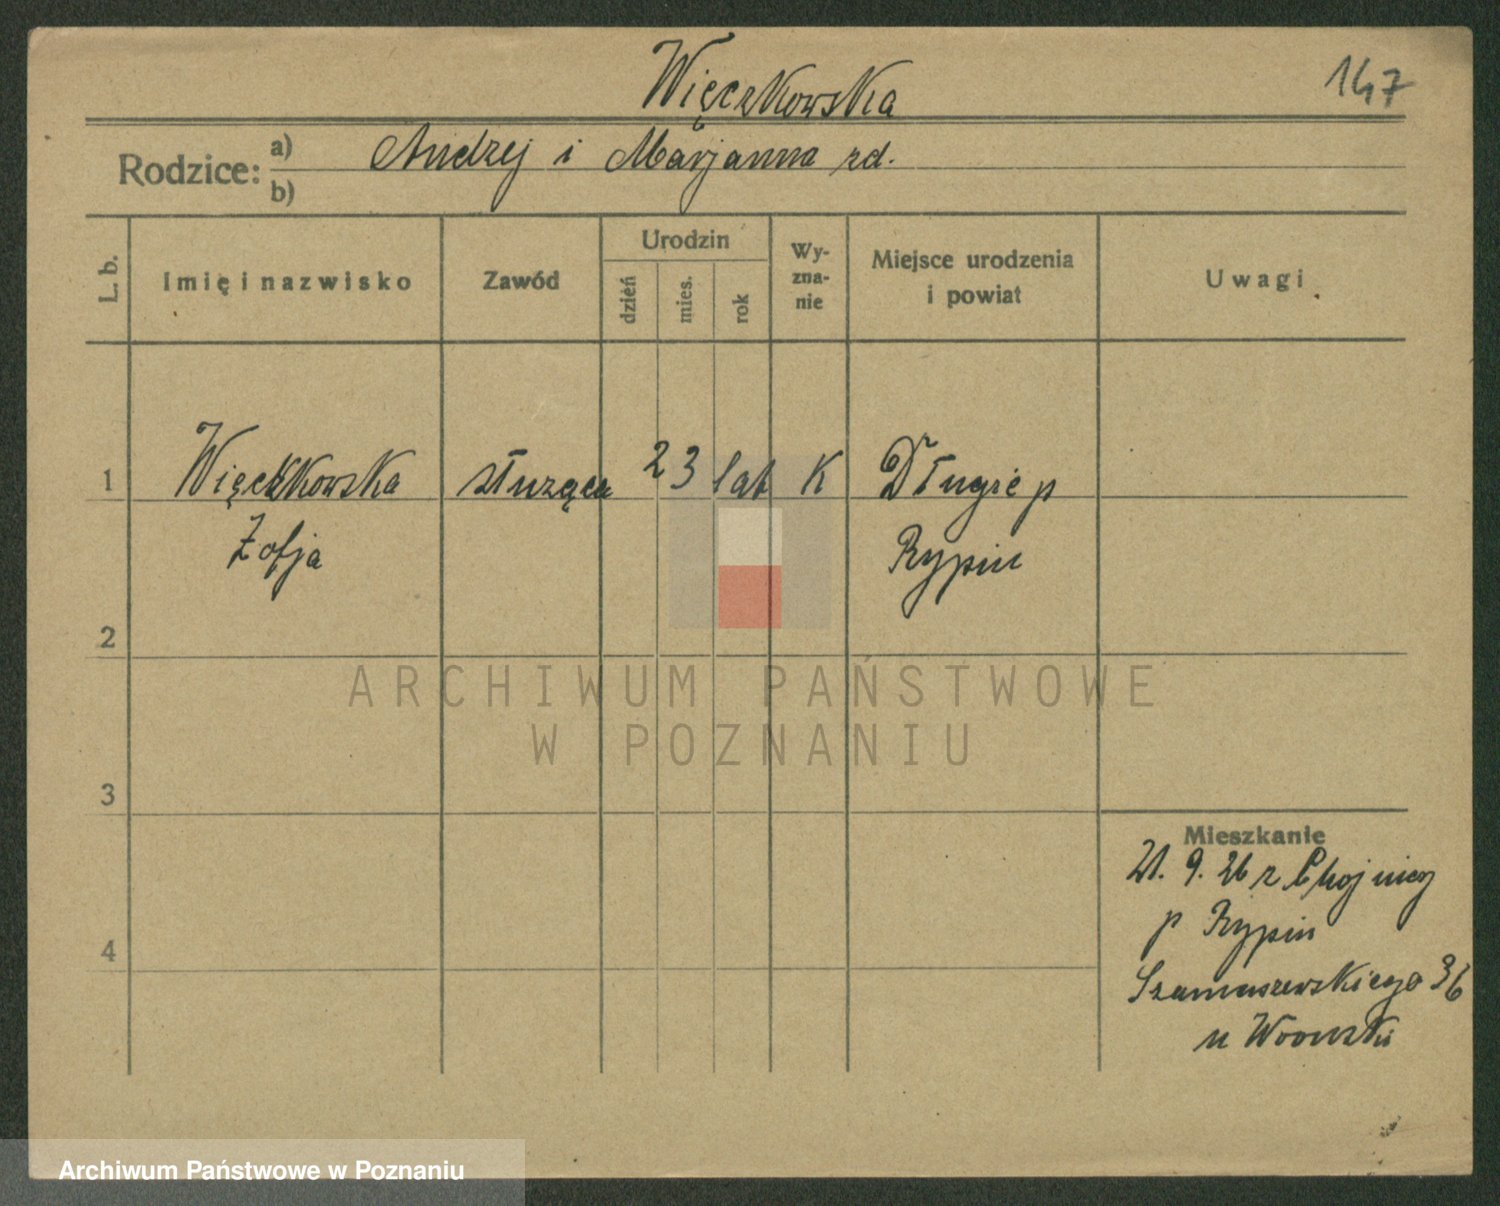 Więczkowska
147
Rodzice: a) Andrzej i Marjanna zd.
b)
L. b.
Imię i nazwisko
Zawód
Urodzin
dzień
mies.
rok
Wy-
zna-
nie
Miejsce urodzenia
i powiat
Uwagi
1 Więczkowska służąca 23 lat K Długie p
Zofja Rypin
2
3
4
Mieszkanie
21. 9. 26 z Chojnicy
p Rypin
36
u
ARCHIWUM PAŃSTWOWE
W POZNANIU
Archiwum Państwowe w Poznaniu